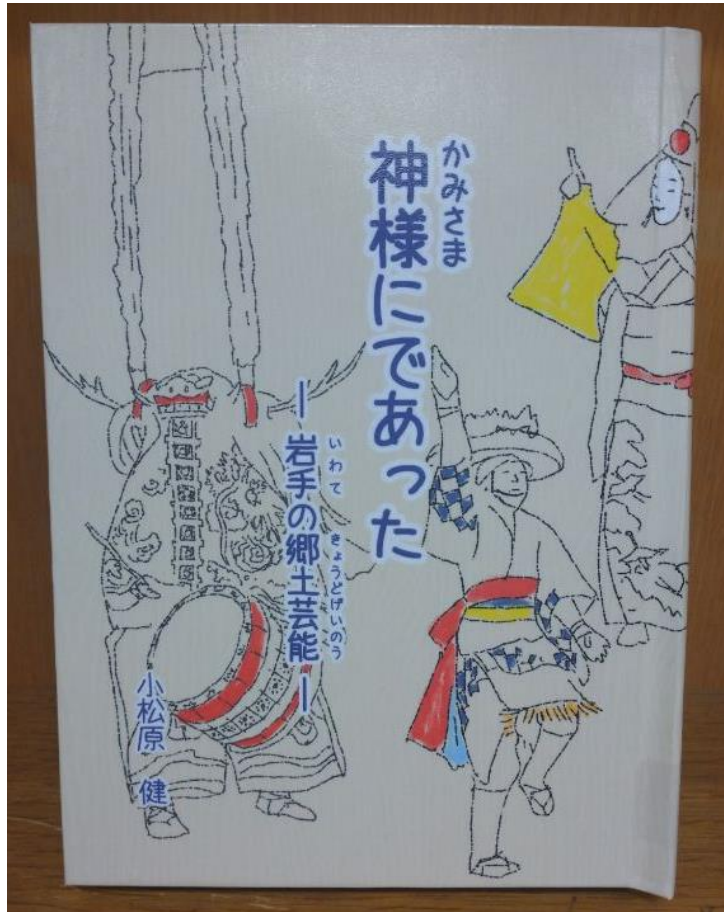 かみさま
神様にであった
いわて きょうどげいのう
―岩手の郷土芸能―
小松原 健